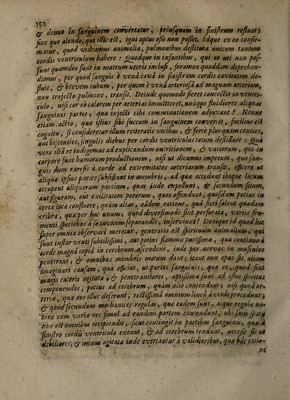 150
& denuo in sanguinem convertatur, priusquam in sinistrum relabat'
sine quo alendo, qui illic est, igni aptus esse non posset. Idque ex eo confir-
matur, quod videamus animalia, pulmonibus destituta unicum tantum
cordis ventriculum habere: Quodque in infantibus, qui eo uti non pos-
sunt quamdiu sunt in matrum uteris inclusi, foramen quoddam deprehen-
damus, per quod sanguis è venâ cavâ in sinistram cordis cavitatem de-
fluit, & brevem tubum, per quem è venâ arteriosâ ad magnam arteriam,
non trajecto pulmone, transit. Deinde quomodo fieret concoctio in ventri-
culo, nisi cor eò calorem per arterias immitteret, unáque fluidiores aliquas
sanguinis partes, quæ injecti cibi comminutionem adjuvant? Nonne
etiam actio, quæ istius cibi succum in sanguinem convertit, facilis est
cognitu, si consideretur illum reiteratis vicibus, & fortè plusquam centies,
aut bis centies, singulis diebus per cordis ventriculos totum destillare? Quâ
verò aliâ re indigemus ad explicandam nutritionem, & variorum, qui in
corpore sunt humorum productionem, nisi ut dicamus impetum, quo san-
guis dum rarefit à corde ad extremitates arteriarum transit, efficere ut
aliquæ ejus partes subsistant in membris, ad quæ accedunt ibique locum
occupent aliquarum partium, quas inde expellunt, & secundum situm,
aut figuram, aut exilitatem pororum, quos offendunt, quasdam potius in
certa loca confluere, quàm alias, eâdem ratione, quâ fieri solent quædam
cribra, quæ per hoc unum, quòd diversimodè sint perforata, variis fru-
menti speciebus à se invicem separandis, inserviunt? Denique id quod hîc
super omnia observari meretur, generatio est spirituum animalium, qui
sunt instar venti subtilissimi, aut potius flammæ purissimæ, quæ continuè è
corde magnâ copiâ in cerebrum ascendens, inde per nervos in musculos
penetrant, & omnibus membris motum dant; itaut non opus sit aliam
imaginari causam, quæ efficiat, ut partes sanguinis, quæ ut, quod sint
magis cæteris agitatæ, & penetrantiores, aptissimæ sunt ad istos spiritus
componendos, potius ad cerebrum, quàm aliò contendant; nisi quòd ar-
teriæ, quæ eas illuc deferunt, rectissimâ omnium lineâ à corde procedant;
& quòd secundum mechanices regulas, quæ eædem sunt, atque regulæ na-
turæ cùm varia res simul ad eandem partem contendunt, ubi satis spatij
non est omnibus recipiendis, sicut contingit in partibus sanguinis, quæ à
sinistro cordis ventriculo exeunt, & ad cerebrum tendunt, necesse sit ut
debiliores, & minus agitatæ inde avertantur à validioribus, quæ hac ratio-
ne